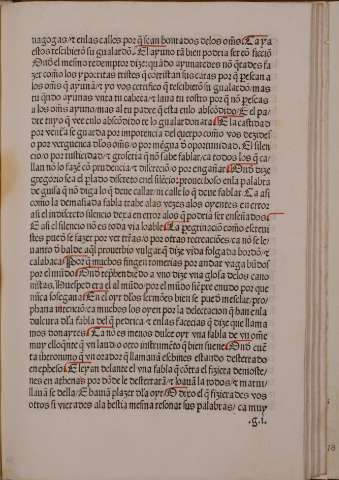 nagogas ⁊ enlas calles por q̄ sean honrados delos om̄s. La ya
estos rescibierō su gualardō. El ayuno tābien podria ser cō ficciō
Onđ el mesmo redemptor dize: quādo ayunaredes nō q̄rades fa
zer como los ypocritas tristes q̄ cōtristan sus caras por q̄ pescan a
los om̄s q̄ ayunā ⁊ yo vos certifico q̄ rescibierō su gualardō. mas
tu q̄ndo ayunas vnta tu cabeça ⁊ laua tu rostro por q̄ nō pescas
a los om̄s ayuno. mas al tu padre q̄ esta enlo abscōdido. E el pa
dre tuyo q̄ vee enlo abscōdido te lo gualardonara. E la castidad
por vētura se guarda por impotencia del cuerpo como vos dezides
o por verguença dlos om̄s / o por mēgua d̄ oportunidad. El silen
cio / o por rusticidad / ⁊ groseria q̄ nō sabe fablar / ca todos los q̄ ca
llan nō lo fazē cō prudencia / ⁊ discreciō o por engañar. Onđ dize
gregorio sea el plado discreto en el silēcio: prouechoso en la palabra
de guisa q̄ nō diga lo q̄ deue callar / ni calle lo q̄ deue fablar. Ca asi
como la demasiada fabla trahe alas vezes alos oyentes en error
asi el indiscreto silencio dexa en error alos q̄ podria ser enseñados.
E asi el silencio nō es toda via loable. La pegrinaciō como escreui
stes puede se fazer por vētr̄as / o por otras recreaciones / ca nō se le-
uantō d̄ balde aq̄l prouerbio vulgar q̄ dize vida folgada bordō ⁊
calabaça. Por q̄ muchos fingē romerias por andar vagabūdos
por el mūdo. Onđ rephendiēdo a vno dize vna glosa delos cano
nistas. Huesped era el al mūdo / por el mūdo siēpre ẽnudo por que
nūca solegaua. En el oyr dlos sermōes bien se pued̄ mesclar / pro
phana intenciō / ca muchos los oyen por la delectacion q̄ han en la
dulcura dla fabla del q̄ predica ⁊ enlas facecias q̄ dize que llama
mos donayres. Ca nō es menos dulce oyr vna fabla de vn om̄e
muy elloq̄nte q̄ vn laud / o otro instrumēto q̄ bien suene. Onđ cuē
ta iheronimo q̄ vn orador q̄ llamauā eschines estando desterrado
en epheso. E leyan delante el vna fabla q̄ cōtra el fiziera demoste-
nes en athenas por dōde le desterrarā ⁊ loauā la todos / ⁊ maraui
llauā se della / E hauiā plazer dla oyr. E dixo el q̄ fizierades vos
otros si vierades ala bestia mesma resonar sus palabras / ca muy
.g.i.